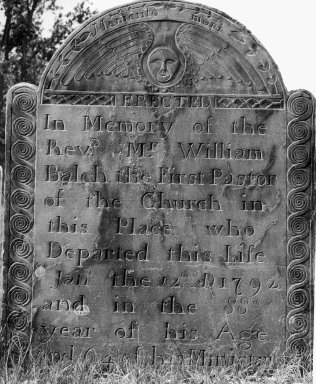 Memento mori
ERECTED
In Memory of the
Revd. Mr. William
Balch the First Pastor
of the Church in
this Place who
Departed this Life
Jany. the 12th. 1792
and in the 88th
year of his Age
and 64 of his Ministry